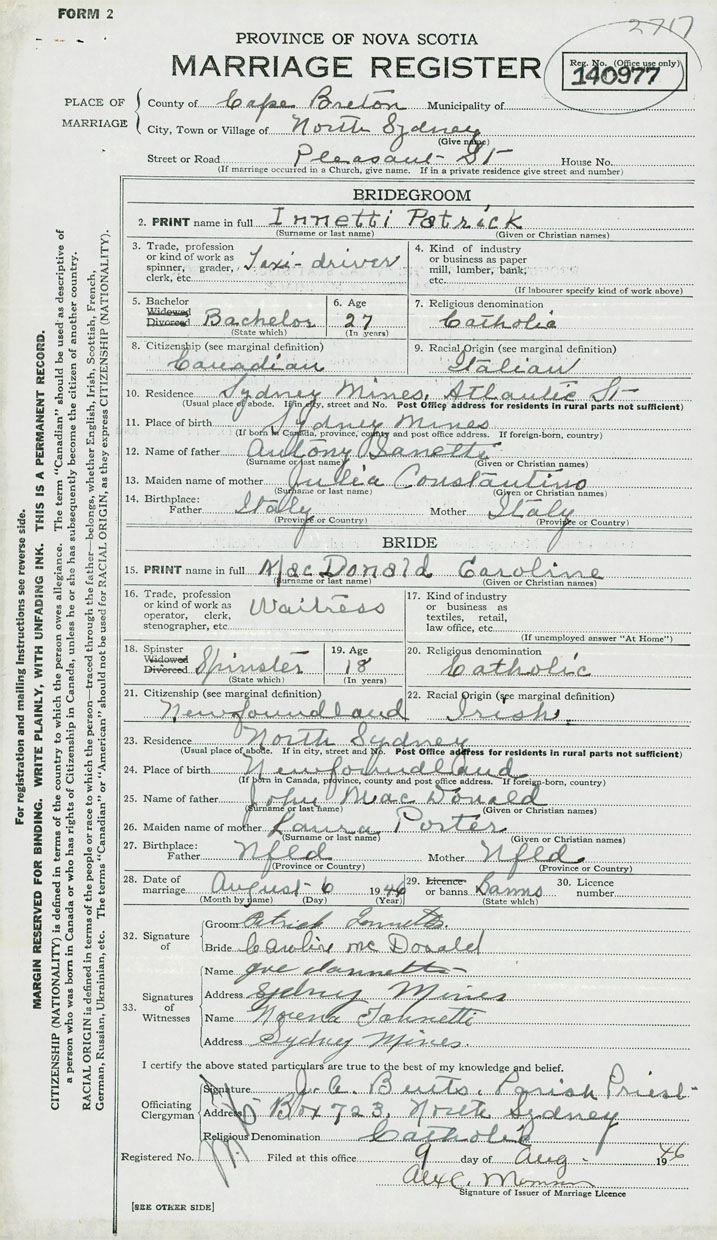 FORM 2
2717
PROVINCE OF NOVA SCOTIA
MARRIAGE REGISTER
Reg. No. (Office use only)
140977
PLACE OF MARRIAGE
County of Cape Breton Municipality of
City, Town or Village of North Sydney
(Give name)
Street or Road Pleasant St House No.
(If marriage occurred in a Church, give name. If in a private residence give street and number)
BRIDEGROOM
2. PRINT name in full Innetti Patrick
(Surname or last name) (Given or Christian names)
3. Trade, profession or kind of work as spinner, grader, clerk, etc. Taxi-driver
4. Kind of industry or business as paper mill, lumber, bank, etc.
(If labourer specify kind of work above)
5. Bachelor Widowed Divorced Bachelor
(State which)
6. Age 27
(In years)
7. Religious denomination
Catholic
8. Citizenship (see marginal definition)
Canadian
9. Racial Origin (see marginal definition)
Italian
10. Residence Sydney Mines, Atlantic St
(Usual place of abode. If in city, street and No. Post Office address for residents in rural parts not sufficient)
11. Place of birth Sydney Mines
(If born in Canada, province, county and post office address. If foreign-born, country)
12. Name of father Antony Ianetti
(Surname or last name) (Given or Christian names)
13. Maiden name of mother Julia Constantino
(Surname or last name) (Given or Christian names)
14. Birthplace: Father Italy Mother Italy
(Province or Country) (Province or Country)
BRIDE
15. PRINT name in full MacDonald Caroline
(Surname or last name) (Given or Christian names)
16. Trade, profession or kind of work as operator, clerk, stenographer, etc. Waitress
17. Kind of industry or business as textiles, retail, law office, etc.
(If unemployed answer "At Home")
18. Spinster Widowed Divorced Spinster
(State which)
19. Age 18
(In years)
20. Religious denomination
Catholic
21. Citizenship (see marginal definition)
Newfoundland
22. Racial Origin (see marginal definition)
Irish.
23. Residence North Sydney
(Usual place of abode. If in city, street and No. Post Office address for residents in rural parts not sufficient)
24. Place of birth Newfoundland
(If born in Canada, province, county and post office address. If foreign-born, country)
25. Name of father John MacDonald
(Surname or last name) (Given or Christian names)
26. Maiden name of mother Laura Porter
(Surname or last name) (Given or Christian names)
27. Birthplace: Father Nfld Mother Nfld
(Province or Country) (Province or Country)
28. Date of marriage August 6 1946
(Month by name) (Day) (Year)
29. Licence or banns Banns
(State which)
30. Licence number
32. Signature of
Groom Patrick
Bride Caroline Mc Donald
33. Signatures of Witnesses
Name Joe Iannetti
Address Sydney Mines
Name
Address Sydney Mines.
I certify the above stated particulars are true to the best of my knowledge and belief.
Officiating Clergyman
Signature Parish Priest
Address Box 723, North Sydney
Religious Denomination Catholic
Registered No. Filed at this office 9 day of Aug. 1946
Alex C.
Signature of Issuer of Marriage Licence
[SEE OTHER SIDE]
For registration and mailing instructions see reverse side.
MARGIN RESERVED FOR BINDING. WRITE PLAINLY, WITH UNFADING INK. THIS IS A PERMANENT RECORD.
CITIZENSHIP (NATIONALITY) is defined in terms of the country to which the person owes allegiance. The term "Canadian" should be used as descriptive of
a person who was born in Canada or who has rights of Citizenship in Canada, unless he or she has subsequently become the citizen of another country.
RACIAL ORIGIN is defined in terms of the people or race to which the person—traced through the father—belongs, whether English, Irish, Scottish, French,
German, Russian, Ukrainian, etc. The terms "Canadian" or "American" should not be used for RACIAL ORIGIN, as they express CITIZENSHIP (NATIONALITY).